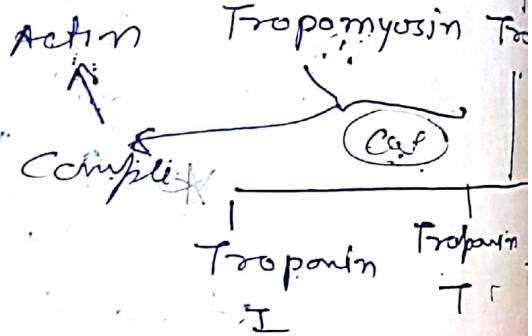 Actin Tropomyosin Tro
Complex
Troponin Troponin
I T